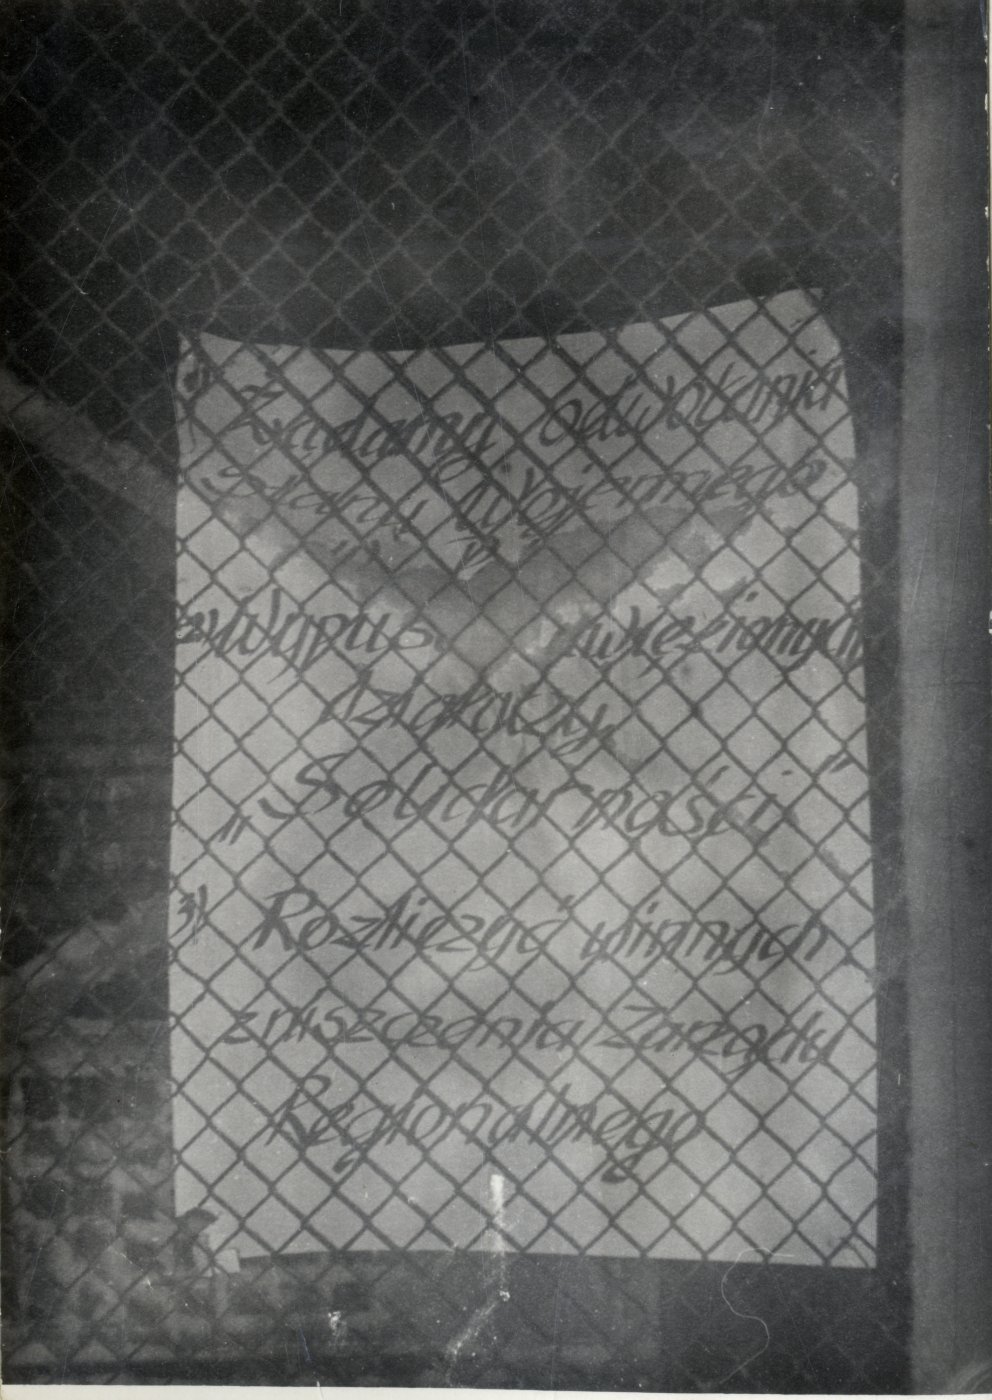 1) Żądamy odwołania
stanu wojennego
2) Wypuś uwięzionych
działaczy
"Solidarności"
3) Rozliczyć winnych
zniszczenia Zarządu
Regionalnego